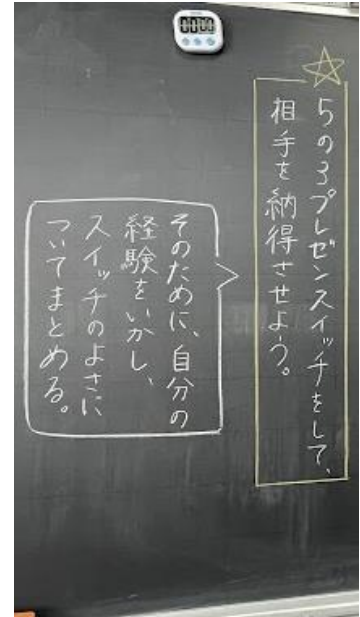 ５の３プレゼンスイッチをして、
相手を納得させよう。
そのために、自分の
経験をいかし、
スイッチのよさに
ついてまとめる。